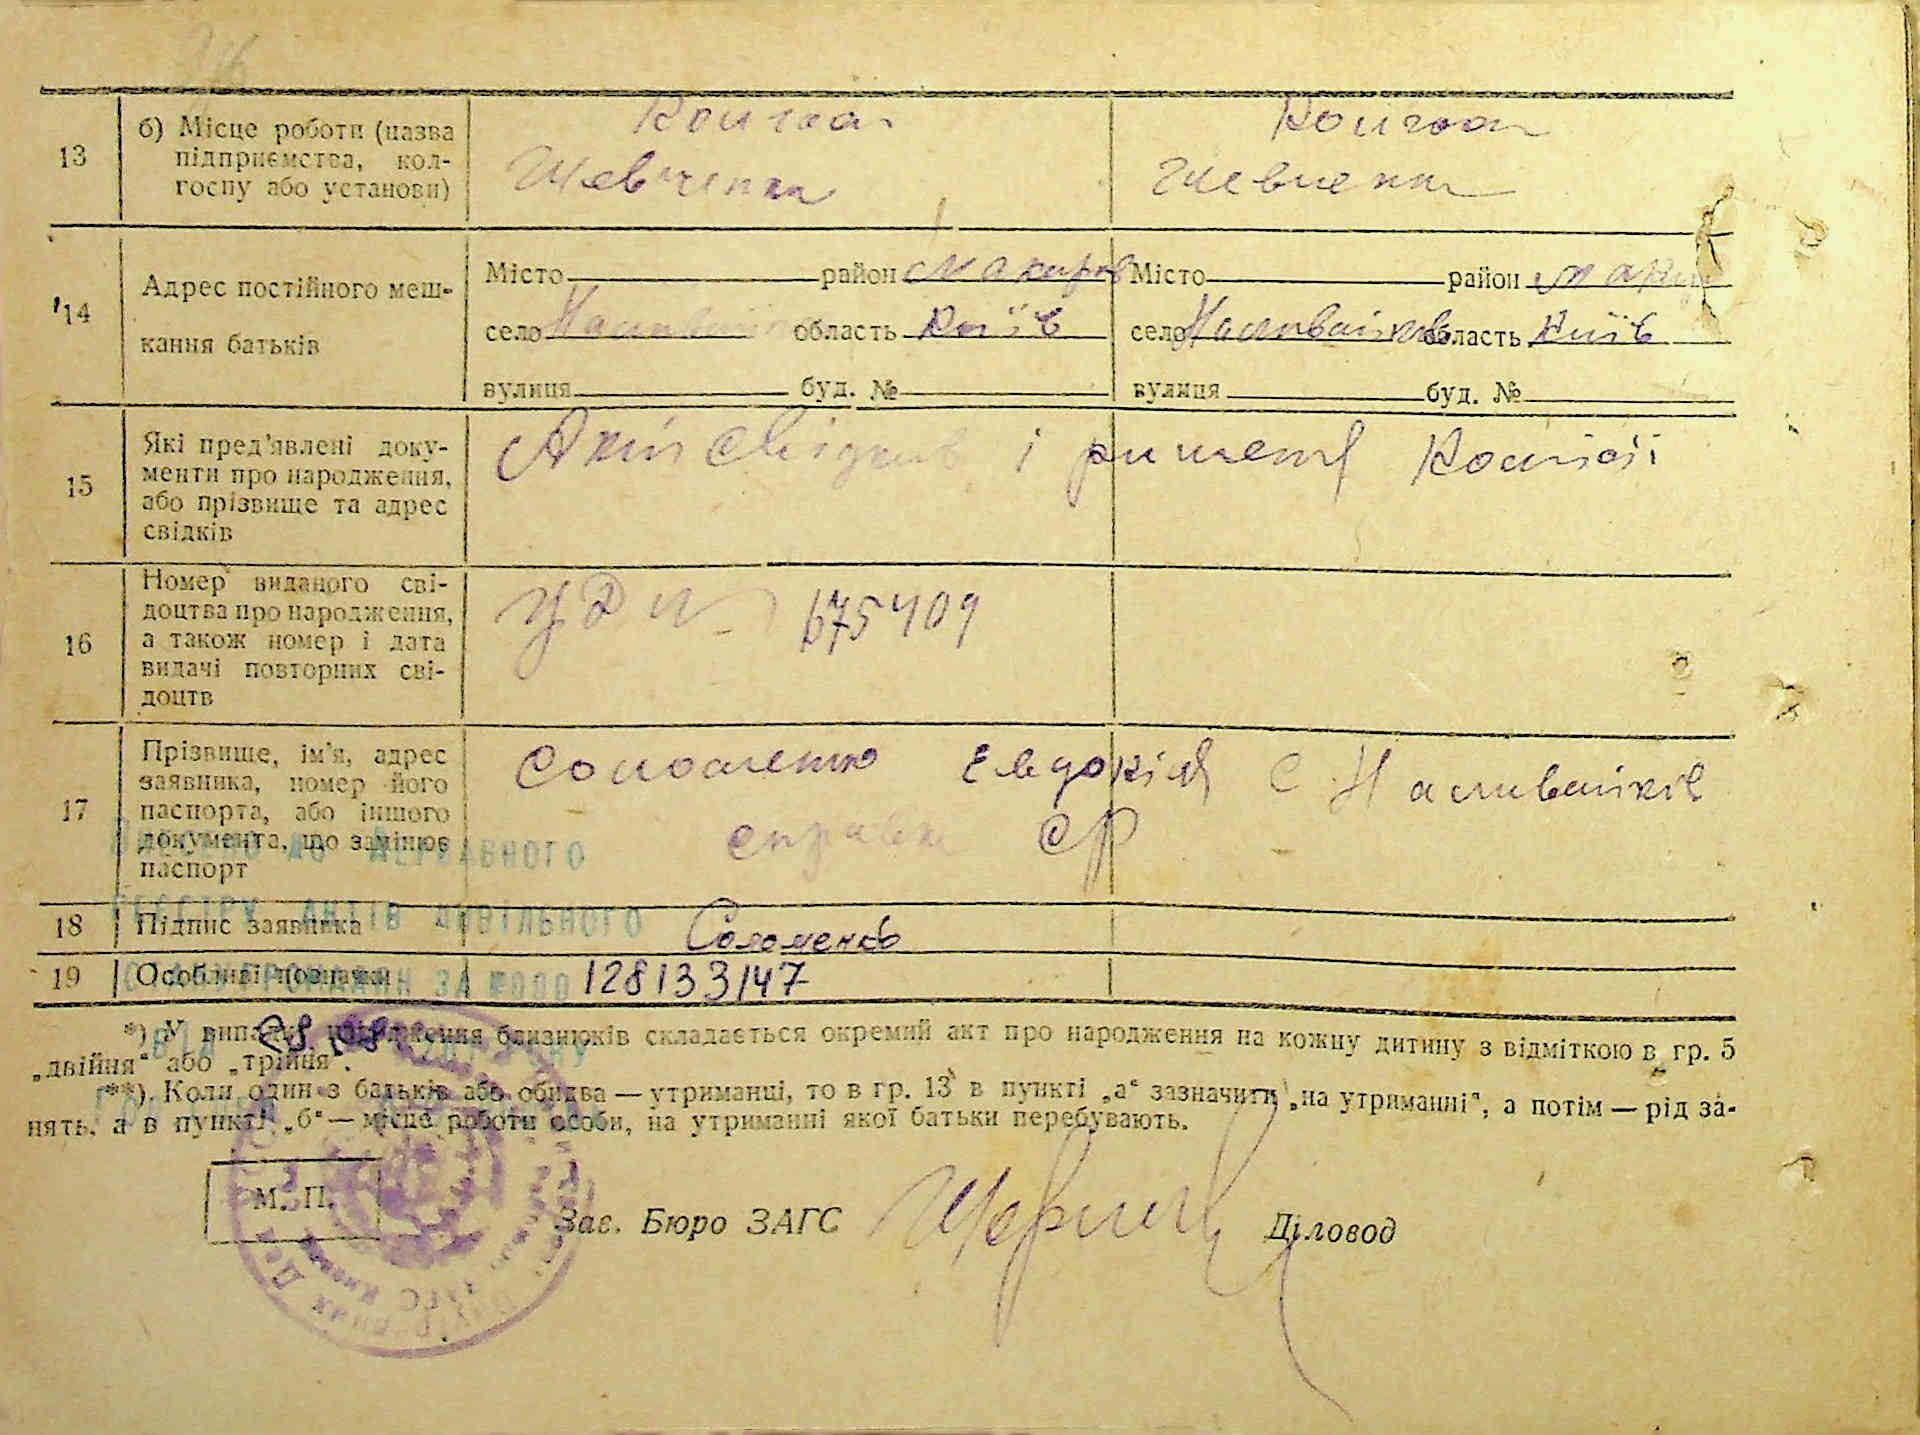 13
б) Місце роботи (назва
підприємства, кол-
госпу або установи)
Колгосп
Колгосп
Шевченка
Шевченка
14
Адрес постійного меш-
кання батьків
Місто район Макарів Місто район Макар
село Наливайків область Київ село Наливайків область Київ
вулиця буд. № вулиця буд. №
15
Які пред'явлені доку-
менти про народження,
або прізвище та адрес
свідків
Акт свідків і рішення Комісії
16
Номер виданого сві-
доцтва про народження,
а також номер і дата
видачі повторних сві-
доцтв
675409
17
Прізвище, ім'я, адрес
заявника, номер його
паспорта, або іншого
документа, що замінює
паспорт
Соломенко Евдокія с Наливайків
справка СР
до Державного
реєстру актів цивільного
18 Підпис заявника Соломенко
19 Особливі познаки 128133147
громадян за №000
*) У випадку народження близнюків складається окремий акт про народження на кожну дитину з відміткою в гр. 5
„двійня“ або „трійня“.
**) Коли один з батьків або обидва — утриманці, то в гр. 13 в пункті „а“ зазначити „на утриманні“, а потім — рід за-
нять, а в пункті „б“ — місце роботи особи, на утриманні якої батьки перебувають.
М. П.
Зав. Бюро ЗАГС Діловод